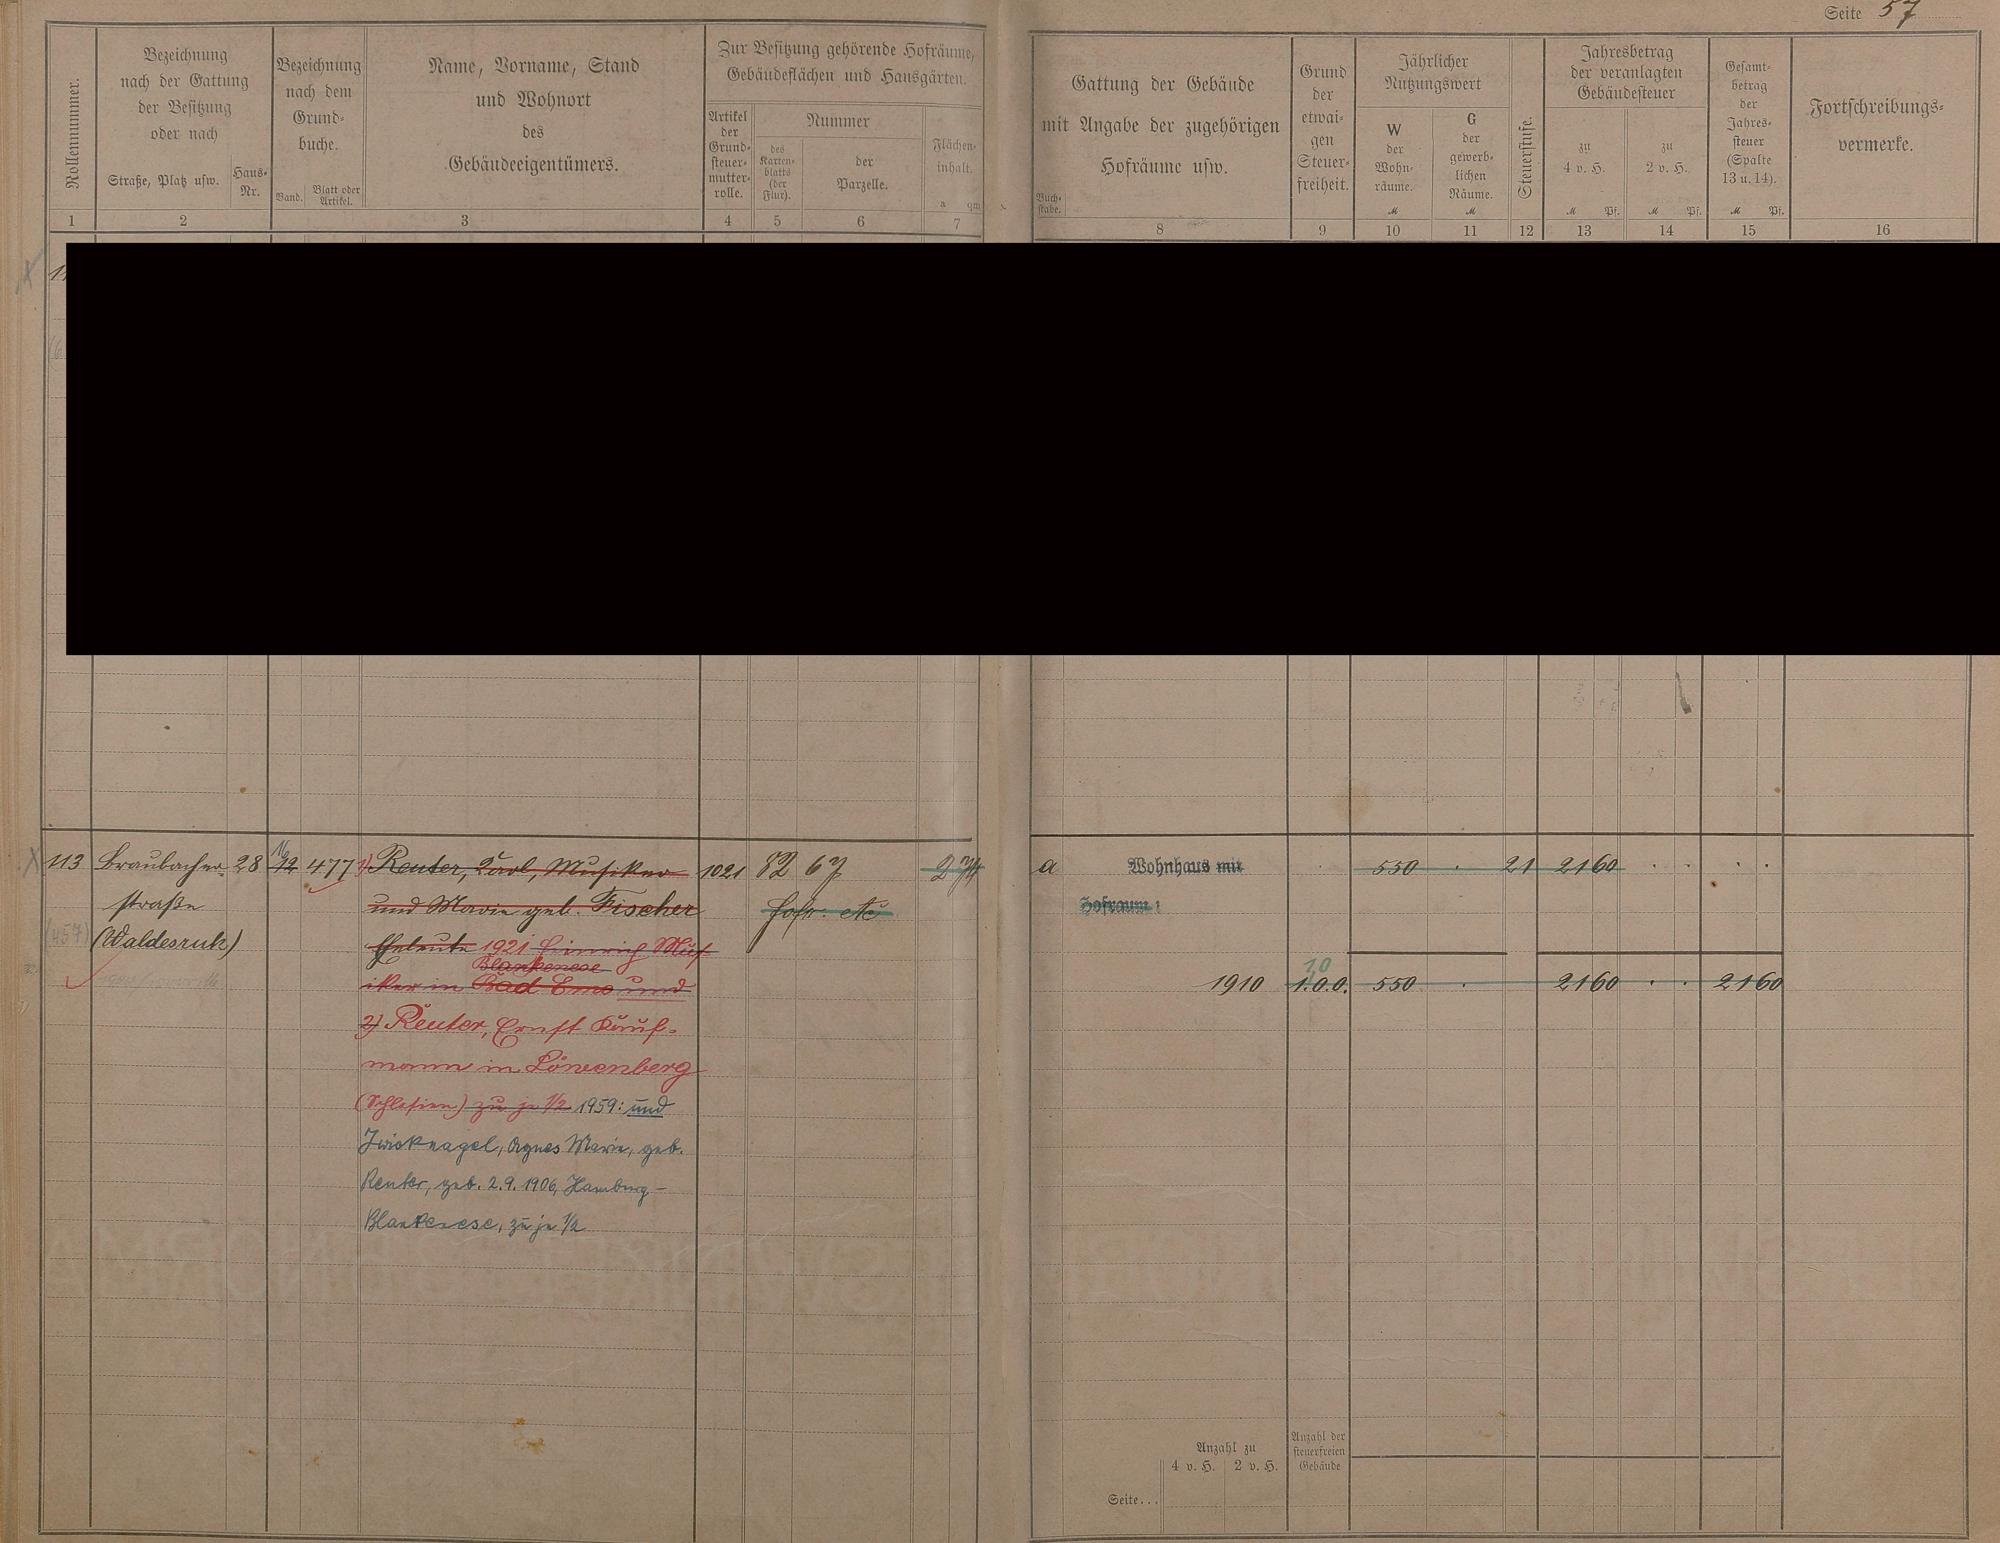 Seite 57
Rollennummer.
Bezeichnung
nach der Gattung
der Besitzung
oder nach
Straße, Platz usw.
Haus-
Nr.
Bezeichnung
nach dem
Grund-
buche.
Band.
Blatt oder
Artikel.
Name, Vorname, Stand
und Wohnort
des
Gebäudeeigentümers.
Zur Besitzung gehörende Hofräume,
Gebäudeflächen und Hausgärten.
Artikel
der
Grund-
steuer-
mutter-
rolle.
Nummer
des
Karten-
blatts
(der
Flur).
der
Parzelle.
Flächen-
inhalt.
a qm
Buch-
stabe.
Gattung der Gebäude
mit Angabe der zugehörigen
Hofräume usw.
Grund
der
etwai-
gen
Steuer-
freiheit.
Jährlicher
Nutzungswert
W
der
Wohn-
räume.
M
G
der
gewerb-
lichen
Räume.
M
Steuerstufe.
Jahresbetrag
der veranlagten
Gebäudesteuer
zu
4 v. H.
M Pf.
zu
2 v. H.
M Pf.
Gesamt-
betrag
der
Jahres-
steuer
(Spalte
13 u. 14).
M Pf.
Fortschreibungs-
vermerke.
1 2 3 4 5 6 7 8 9 10 11 12 13 14 15 16
113 Braubacher- 28 12 477
16
straße
(457) (Waldesruh)
1) Reuter, Karl, Musiker
und Marie geb. Fischer
Eheleute 1921 Heinrich Mus
Blankenese
iker in Bad Ems und
2) Reuter, Ernst Kauf-
mann in Löwenberg
(Schlesien) zu je 1/2 1959: und
Zwicknagel, Agnes Marie, geb.
Reuter, geb. 2.9.1906, Hamburg-
Blankenese, zu je 1/2
1021 82 67 274
Hofr. etc
a Wohnhaus mit 550 21 21 60
Hofraum
10
1910 1.0.0. 550 21 60 21 60
Anzahl zu
4 v. H. 2 v. H.
Anzahl der
steuerfreien
Gebäude
Seite...